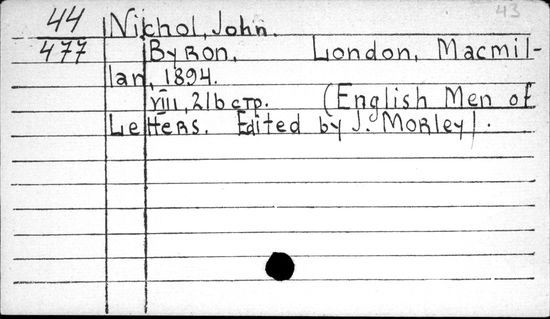 43
44 Nichol, John.
477 Byron. London, Macmil-
lan, 1894.
VIII, 216 стр. (English Men of
Letters. Edited by J. Morley).